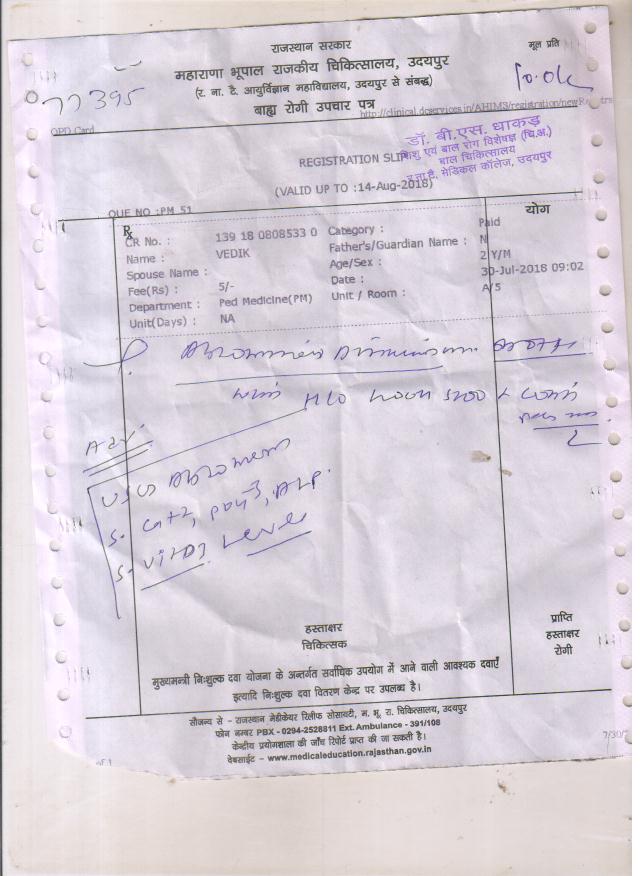 राजस्थान सरकार
मूल प्रति
महाराणा भूपाल राजकीय चिकित्सालय, उदयपुर
(र. ना. टै. आयुर्विज्ञान महाविद्यालय, उदयपुर से संबद्ध)
बाह्य रोगी उपचार पत्र
77395
10.0k
OPD Card
http://clinical.dcservices.in/AHIMS/registration/newRe
डॉ. बी.एस. धाकड़
शिशु एवं बाल रोग विशेषज्ञ (चि.अ.)
बाल चिकित्सालय
र.ना.टै. मेडिकल कॉलेज, उदयपुर
REGISTRATION SLIP
(VALID UP TO :14-Aug-2018)
QUE NO :PM 51
योग
Rx
CR No. : 139 18 0808533 0 Category : Paid
Name : VEDIK Father's/Guardian Name : N
Spouse Name : Age/Sex : 2 Y/M
Fee(Rs) : 5/- Date : 30-Jul-2018 09:02
Department : Ped Medicine(PM) Unit / Room : A/5
Unit(Days) : NA
Adv.
USG Abdomen
S. Ca+2, PO4-3, ALP.
S. Vit D3 Level
हस्ताक्षर
चिकित्सक
प्राप्ति
हस्ताक्षर
रोगी
मुख्यमन्त्री निःशुल्क दवा योजना के अन्तर्गत सर्वाधिक उपयोग में आने वाली आवश्यक दवाएँ
इत्यादि निःशुल्क दवा वितरण केन्द्र पर उपलब्ध है।
सौजन्य से - राजस्थान मेडीकेयर रिलीफ सोसायटी, म. भू. रा. चिकित्सालय, उदयपुर
फोन नम्बर PBX - 0294-2528811 Ext. Ambulance - 391/108
केन्द्रीय प्रयोगशाला की जाँच रिपोर्ट प्राप्त की जा सकती है।
वेबसाईट - www.medicaleducation.rajasthan.gov.in
of 1
7/30/